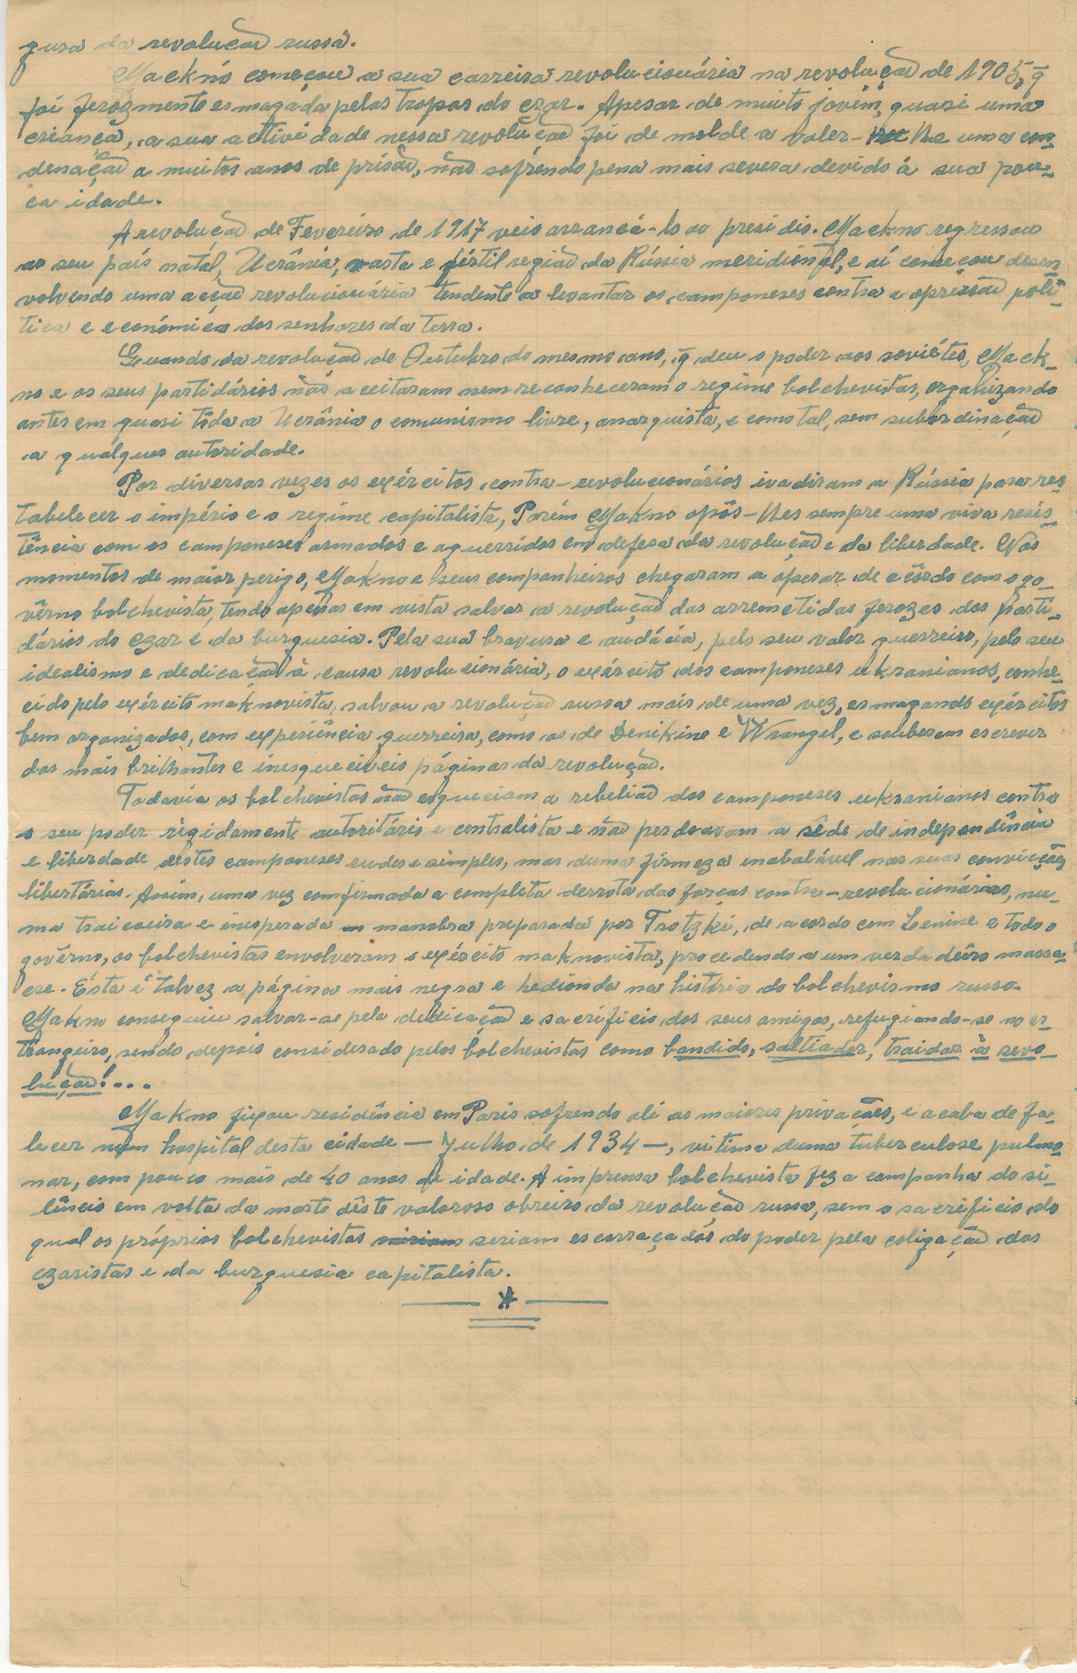 gura da revolução russa.
Mackno começou a sua carreira revolucionária na revolução de 1905, q̄
foi ferozmente esmagada pelas tropas do czar. Apesar de muito jovem, quasi uma
criança, a sua actividade nessa revolução foi de molde a valer-lhe uma con-
denação a muitos anos de prisão, não sofrendo pena mais severa devido á sua pou-
ca idade.
A revolução de Fevereiro de 1917 veio arrancá-lo ao presidio. Mackno regressou
ao seu país natal, Ucrânia, vasta e fértil região da Rússia meridional, e aí começou desen-
volvendo uma acção revolucionária tendente a levantar os camponeses contra a opressão polí-
tica e económica dos senhores da terra.
Quando da revolução de Outubro do mesmo ano, q̄ deu o poder aos soviétes, Mack-
no e os seus partidários não aceitaram nem reconheceram o regime bolchevista, organizando
antes em quasi tôda a Ucrânia o comunismo livre, anarquista, e como tal, sem subordinação
a qualquer autoridade.
Por diversas vezes os exércitos contra-revolucionários ivadiram a Rússia para res-
tabelecer o império e o regime capitalista, Porém Makno opôs-lhes sempre uma viva resis-
tência com os camponeses armados e aguerridos em defesa da revolução e da liberdade. Nos
momentos de maior perigo, Makno e seus companheiros chegaram a operar de acôrdo com o go-
vêrno bolchevista, tendo apenas em vista salvar a revolução das arremetidas ferozes dos parti-
dários do czar e da burguesia. Pela sua bravura e audácia, pelo seu valor guerreiro, pelo seu
idealismo e dedicação à causa revolucionária, o exército dos camponeses ukranianos, conhe-
cido pelo exército maknovista, salvou a revolução russa mais de uma vez, esmagando exércitos
bem organizados, com experiência guerreira, como os de Denikine e Wrangel, e souberam escrever
das mais brilhantes e inesqueciveis páginas da revolução.
Todavia os bolchevistas não esqueciam a rebelião dos camponeses ukranianos contra
o seu poder rigidamente autoritário e centralista e não perdoavam a sêde de independência
e liberdade dêstes camponeses rudes e simples, mas duma firmeza inabalável nas suas convicções
libertárias. Assim, uma vez comfirmada a completa derrota das forças contra-revolucionárias, nu-
ma traiçoeira e inesperada manobra preparada por Trotzki, de acordo com Lenine e todo o
govêrno, os bolchevistas envolveram o exército maknovista, procedendo a um verdadeiro massa-
cre. Esta é talvez a página mais negra e hedionda na história do bolchevismo russo.
Makno conseguiu salvar-se pela dedicação e sacrificio dos seus amigos, refugiando-se no es-
trangeiro, sendo depois considerado pelos bolchevistas como bandido, salteador, traidor à revo-
lução!...
Makno fixou residência em Paris sofrendo ali as maiores privações, e acaba de fa-
lecer num hospital desta cidade — Julho de 1934 —, vitima duma tuberculose pulmo-
nar, com pouco mais de 40 anos de idade. A imprensa bolchevista fez a campanha do si-
lêncio em volta da morte dêste valoroso obreiro da revolução russa, sem o sacrificio do
qual os próprios bolchevistas seriam escorraçados do poder pela coligação dos
czaristas e da burguesia capitalista.
— * —